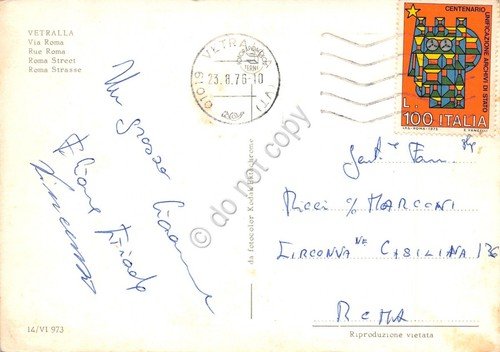 VETRALLA
Via Roma
Rue Roma
Roma Street
Roma Strasse
01019 VETRALLA (VT)
23.8.76-10
CENTENARIO UNIFICAZIONE ARCHIVI DI STATO
L. 100 ITALIA
I.P.S.-ROMA-1975 E. VANGELLI
Un grosso
Vincenzo
da fotocolor Kodak Ektachrome
© do not copy
Gent. Fam.
Ricci c/o MARCONI
CIRCONVA NE CASILINA 136
ROMA
14/VI 973
Riproduzione vietata